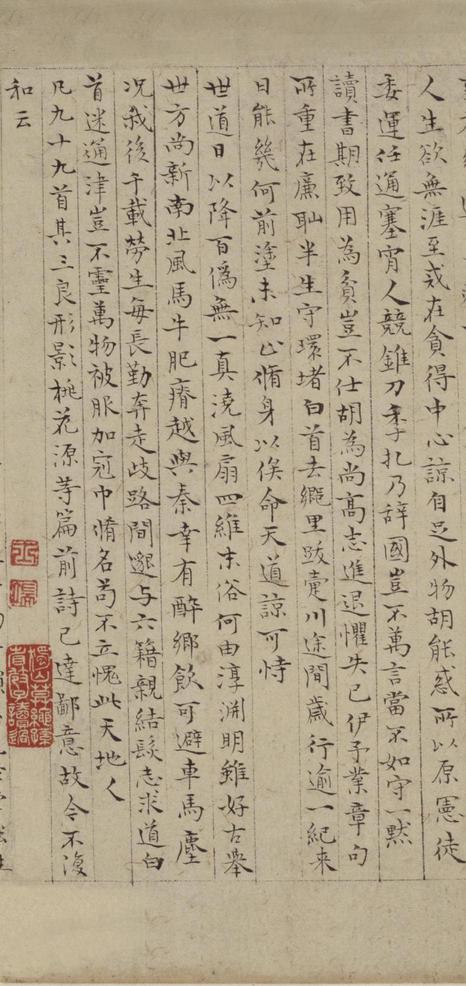 人生欲無涯至戒在貪得中心諒自足外物胡能惑所以原憲徒
委運任通塞宵人競錐刀季札乃辭國豈不萬言當不如守一默
讀書期致用為貧豈不仕胡為尚高志進退懼失已伊予業章句
所重在廉恥半生守環堵白首去鄉里跋疐川途間歲行逾一紀来
日能幾何前塗未知止脩身以俟命天道諒可恃
世道日以降百偽無一真澆風扇四維末俗何由淳淵明雖好古舉
世方尚新南北風馬牛肥瘠越與秦幸有醉鄉飲可避車馬塵
况我後千載勞生每長勤奔走歧路間邈与六籍親結髮志求道白
首迷通津豈不靈萬物被服加冠巾脩名苟不立愧此天地人
凡九十九首其三良形影桃花源等篇前詩已達鄙意故令不復
和云